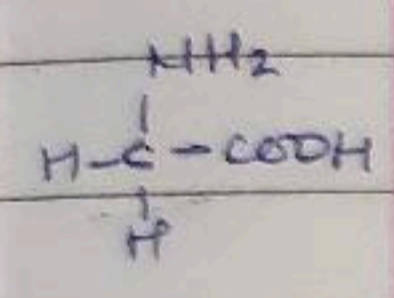 NH2
|
H-C-COOH
|
H